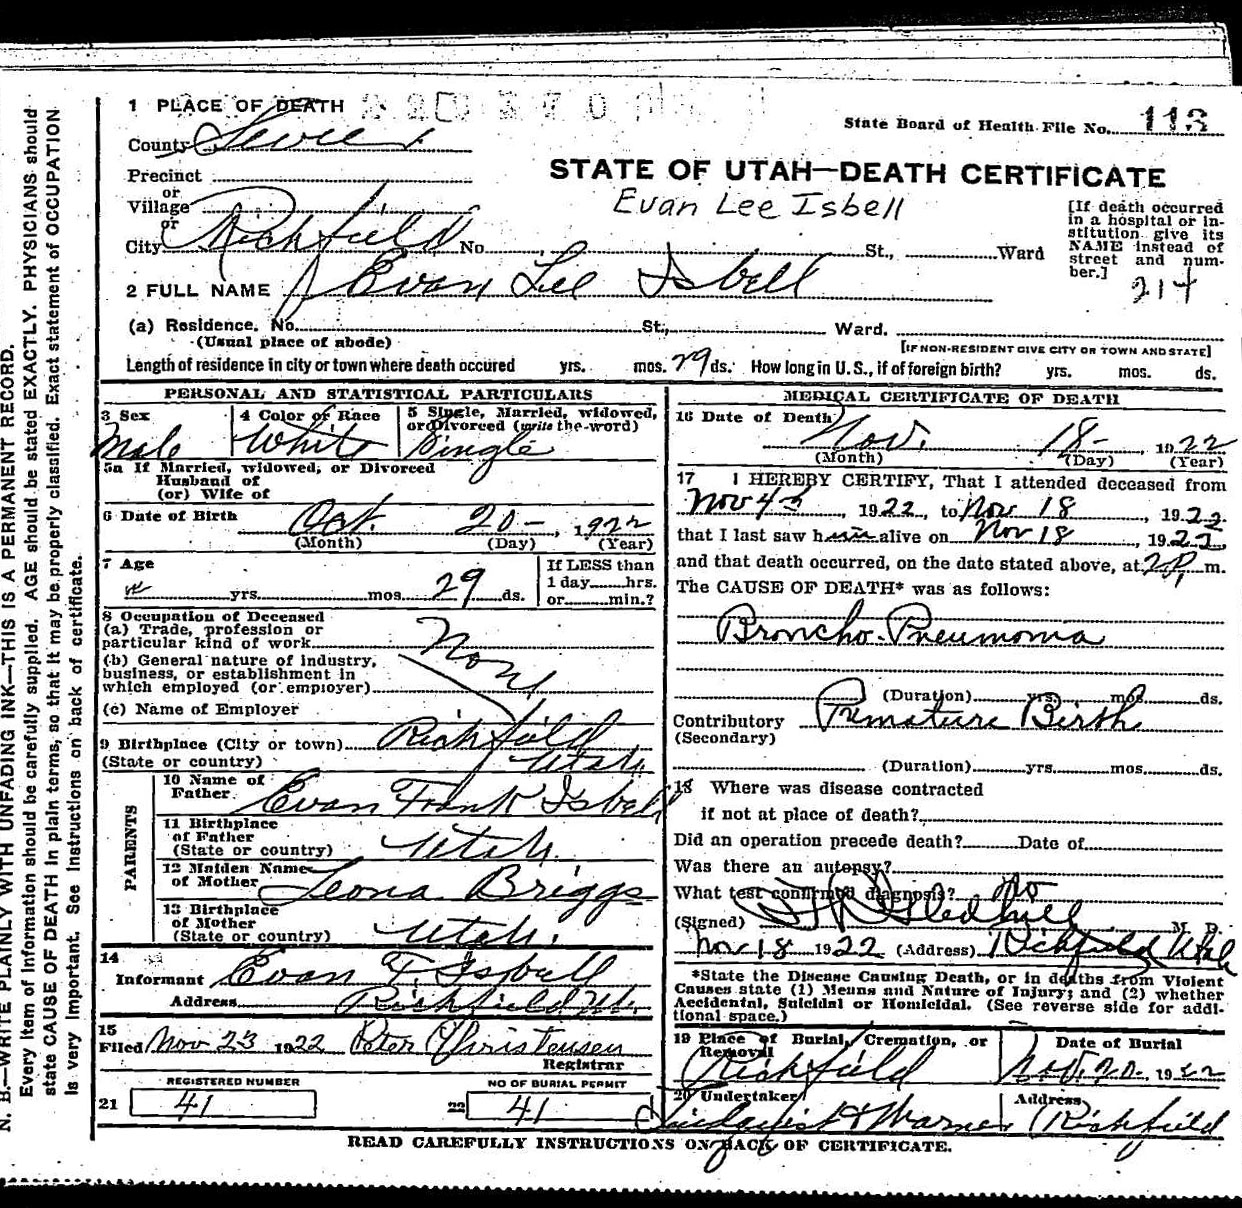 1 PLACE OF DEATH
State Board of Health File No. 113
County Sevier
STATE OF UTAH—DEATH CERTIFICATE
Precinct
or
Village
or
City Richfield No. St., Ward
Evan Lee Isbell
[If death occurred in a hospital or institution give its NAME instead of street and number.]
214
2 FULL NAME Evan Lee Isbell
(a) Residence. No. St., Ward.
(Usual place of abode)
[IF NON-RESIDENT GIVE CITY OR TOWN AND STATE]
Length of residence in city or town where death occured yrs. mos. 29 ds. How long in U. S., if of foreign birth? yrs. mos. ds.
PERSONAL AND STATISTICAL PARTICULARS
3 Sex
Male
4 Color or Race
White
5 Single, Married, widowed, or Divorced (write the word)
Single
5a If Married, widowed, or Divorced
Husband of
(or) Wife of
6 Date of Birth Oct. 20— , 1922
(Month) (Day) (Year)
7 Age
yrs. mos. 29 ds.
If LESS than
1 day hrs.
or min.?
8 Occupation of Deceased
(a) Trade, profession or
particular kind of work
(b) General nature of industry,
business, or establishment in
which employed (or employer)
(c) Name of Employer
9 Birthplace (City or town) Richfield
(State or country) Utah.
PARENTS
10 Name of
Father Evan Frank Isbell
11 Birthplace
of Father
(State or country) Utah.
12 Maiden Name
of Mother Leona Briggs
13 Birthplace
of Mother
(State or country) Utah.
14
Informant Evan F. Isbell
Address Richfield Ut.
15
Filed Nov 23 1922 Peter Christensen
Registrar
REGISTERED NUMBER
21 41
NO OF BURIAL PERMIT
22 41
MEDICAL CERTIFICATE OF DEATH
16 Date of Death
Nov. 18— 1922
(Month) (Day) (Year)
17 I HEREBY CERTIFY, That I attended deceased from
Nov 4th , 1922, to Nov 18 , 1922
that I last saw him alive on Nov 18 , 1922,
and that death occurred, on the date stated above, at m.
The CAUSE OF DEATH* was as follows:
Broncho-Pneumonia
(Duration) yrs. mos. ds.
Contributory Premature Birth
(Secondary)
(Duration) yrs. mos. ds.
18 Where was disease contracted
if not at place of death?
Did an operation precede death? Date of
Was there an autopsy?
What test confirmed diagnosis? no
(Signed) Gledhill M. D.
Nov 18 1922 (Address) Richfield Utah
*State the Disease Causing Death, or in deaths from Violent
Causes state (1) Means and Nature of Injury; and (2) whether
Accidental, Suicidal or Homicidal. (See reverse side for addi-
tional space.)
19 Place of Burial, Cremation, or
Removal
Richfield
Date of Burial
Nov. 20, 1922
20 Undertaker
Warner
Address
Richfield
READ CAREFULLY INSTRUCTIONS ON BACK OF CERTIFICATE.
N. B.—WRITE PLAINLY WITH UNFADING INK—THIS IS A PERMANENT RECORD.
Every item of information should be carefully supplied. AGE should be stated EXACTLY. PHYSICIANS should
state CAUSE OF DEATH in plain terms, so that it may be properly classified. Exact statement of OCCUPATION
is very important. See instructions on back of certificate.